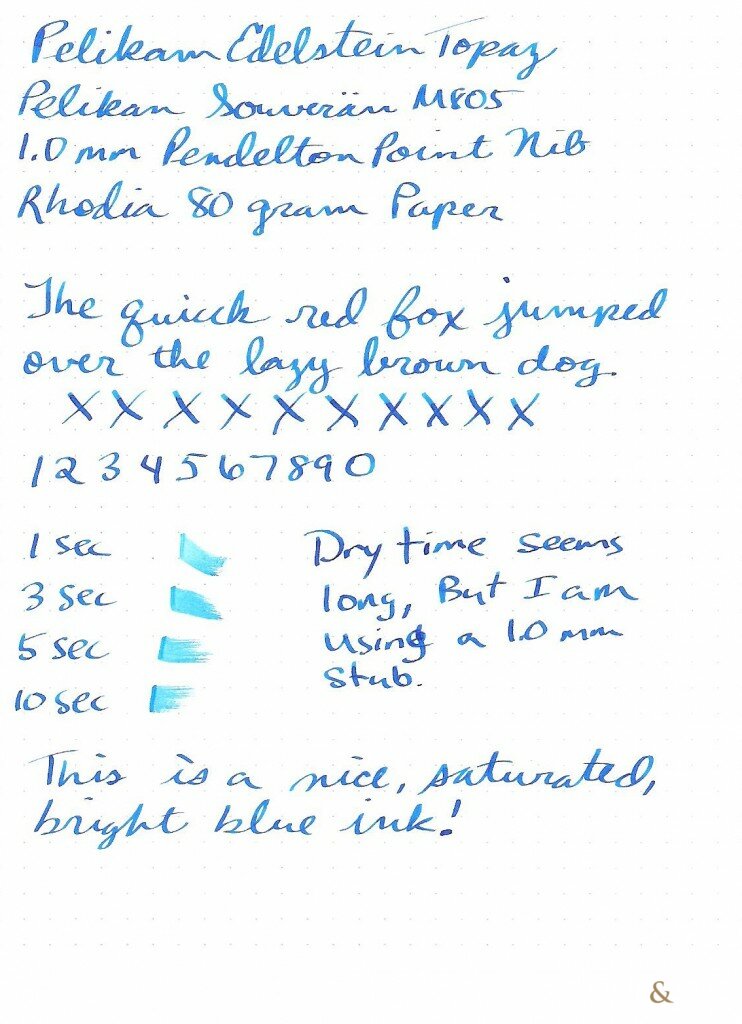 Pelikan Edelstein Topaz
Pelikan Souverän M805
1.0 mm Pendelton Point Nib
Rhodia 80 gram Paper
The quicck red fox jumped
over the lazy brown dog.
X X X X X X X X X X
1 2 3 4 5 6 7 8 9 0
1 sec
3 sec
5 sec
10 sec
Dry time seems
long, But I am
using a 1.0 mm
stub.
This is a nice, saturated,
bright blue ink!
&